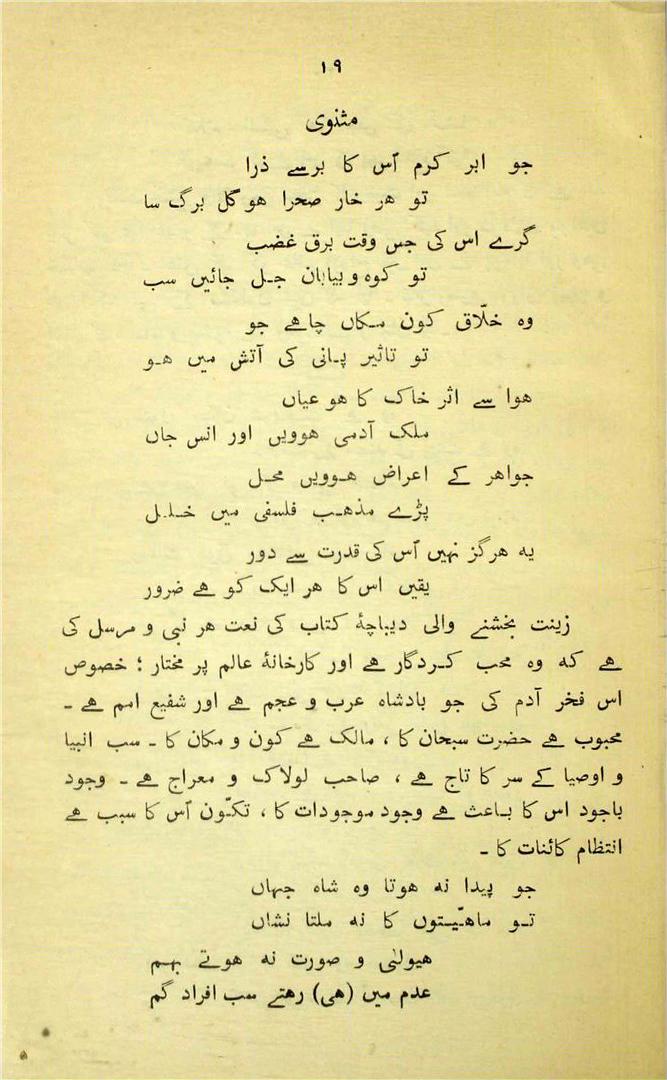 ۱۹
مثنوی
جو ابر کرم اُس کا برسے ذرا
تو ھر خار صحرا ھو گل برگ سا
گرے اس کی جس وقت برق غضب
تو کوہ و بیابان جل جائیں سب
وہ خلّاق کون مکاں چاھے جو
تو تاثیر پانی کی آتش میں ھو
ھوا سے اثر خاک کا ھو عیاں
ملک آدمی ھوویں اور انس جاں
جواھر کے اعراض ھوویں محل
پڑے مذھب فلسفی میں خلل
یہ ھرگز نہیں اُس کی قدرت سے دور
یقیں اس کا ھر ایک کو ھے ضرور
زینت بخشنے والی دیباچۂ کتاب کی نعت ھر نبی و مرسل کی
ھے کہ وہ محب کردگار ھے اور کارخانۂ عالم پر مختار ؛ خصوص
اس فخر آدم کی جو بادشاہ عرب و عجم ھے اور شفیع امم ھے ۔
محبوب ھے حضرت سبحان کا ، مالک ھے کون و مکان کا ۔ سب انبیا
و اوصیا کے سر کا تاج ھے ، صاحب لولاک و معراج ھے ۔ وجود
باجود اس کا باعث ھے وجود موجودات کا ، تکوّن اُس کا سبب ھے
انتظام کائنات کا ۔
جو پیدا نہ ھوتا وہ شاہ جہاں
تو ماھیّتوں کا نہ ملتا نشاں
ھیولیٰ و صورت نہ ھوتے بہم
عدم میں (ھی) رھتے سب افراد گم
۵